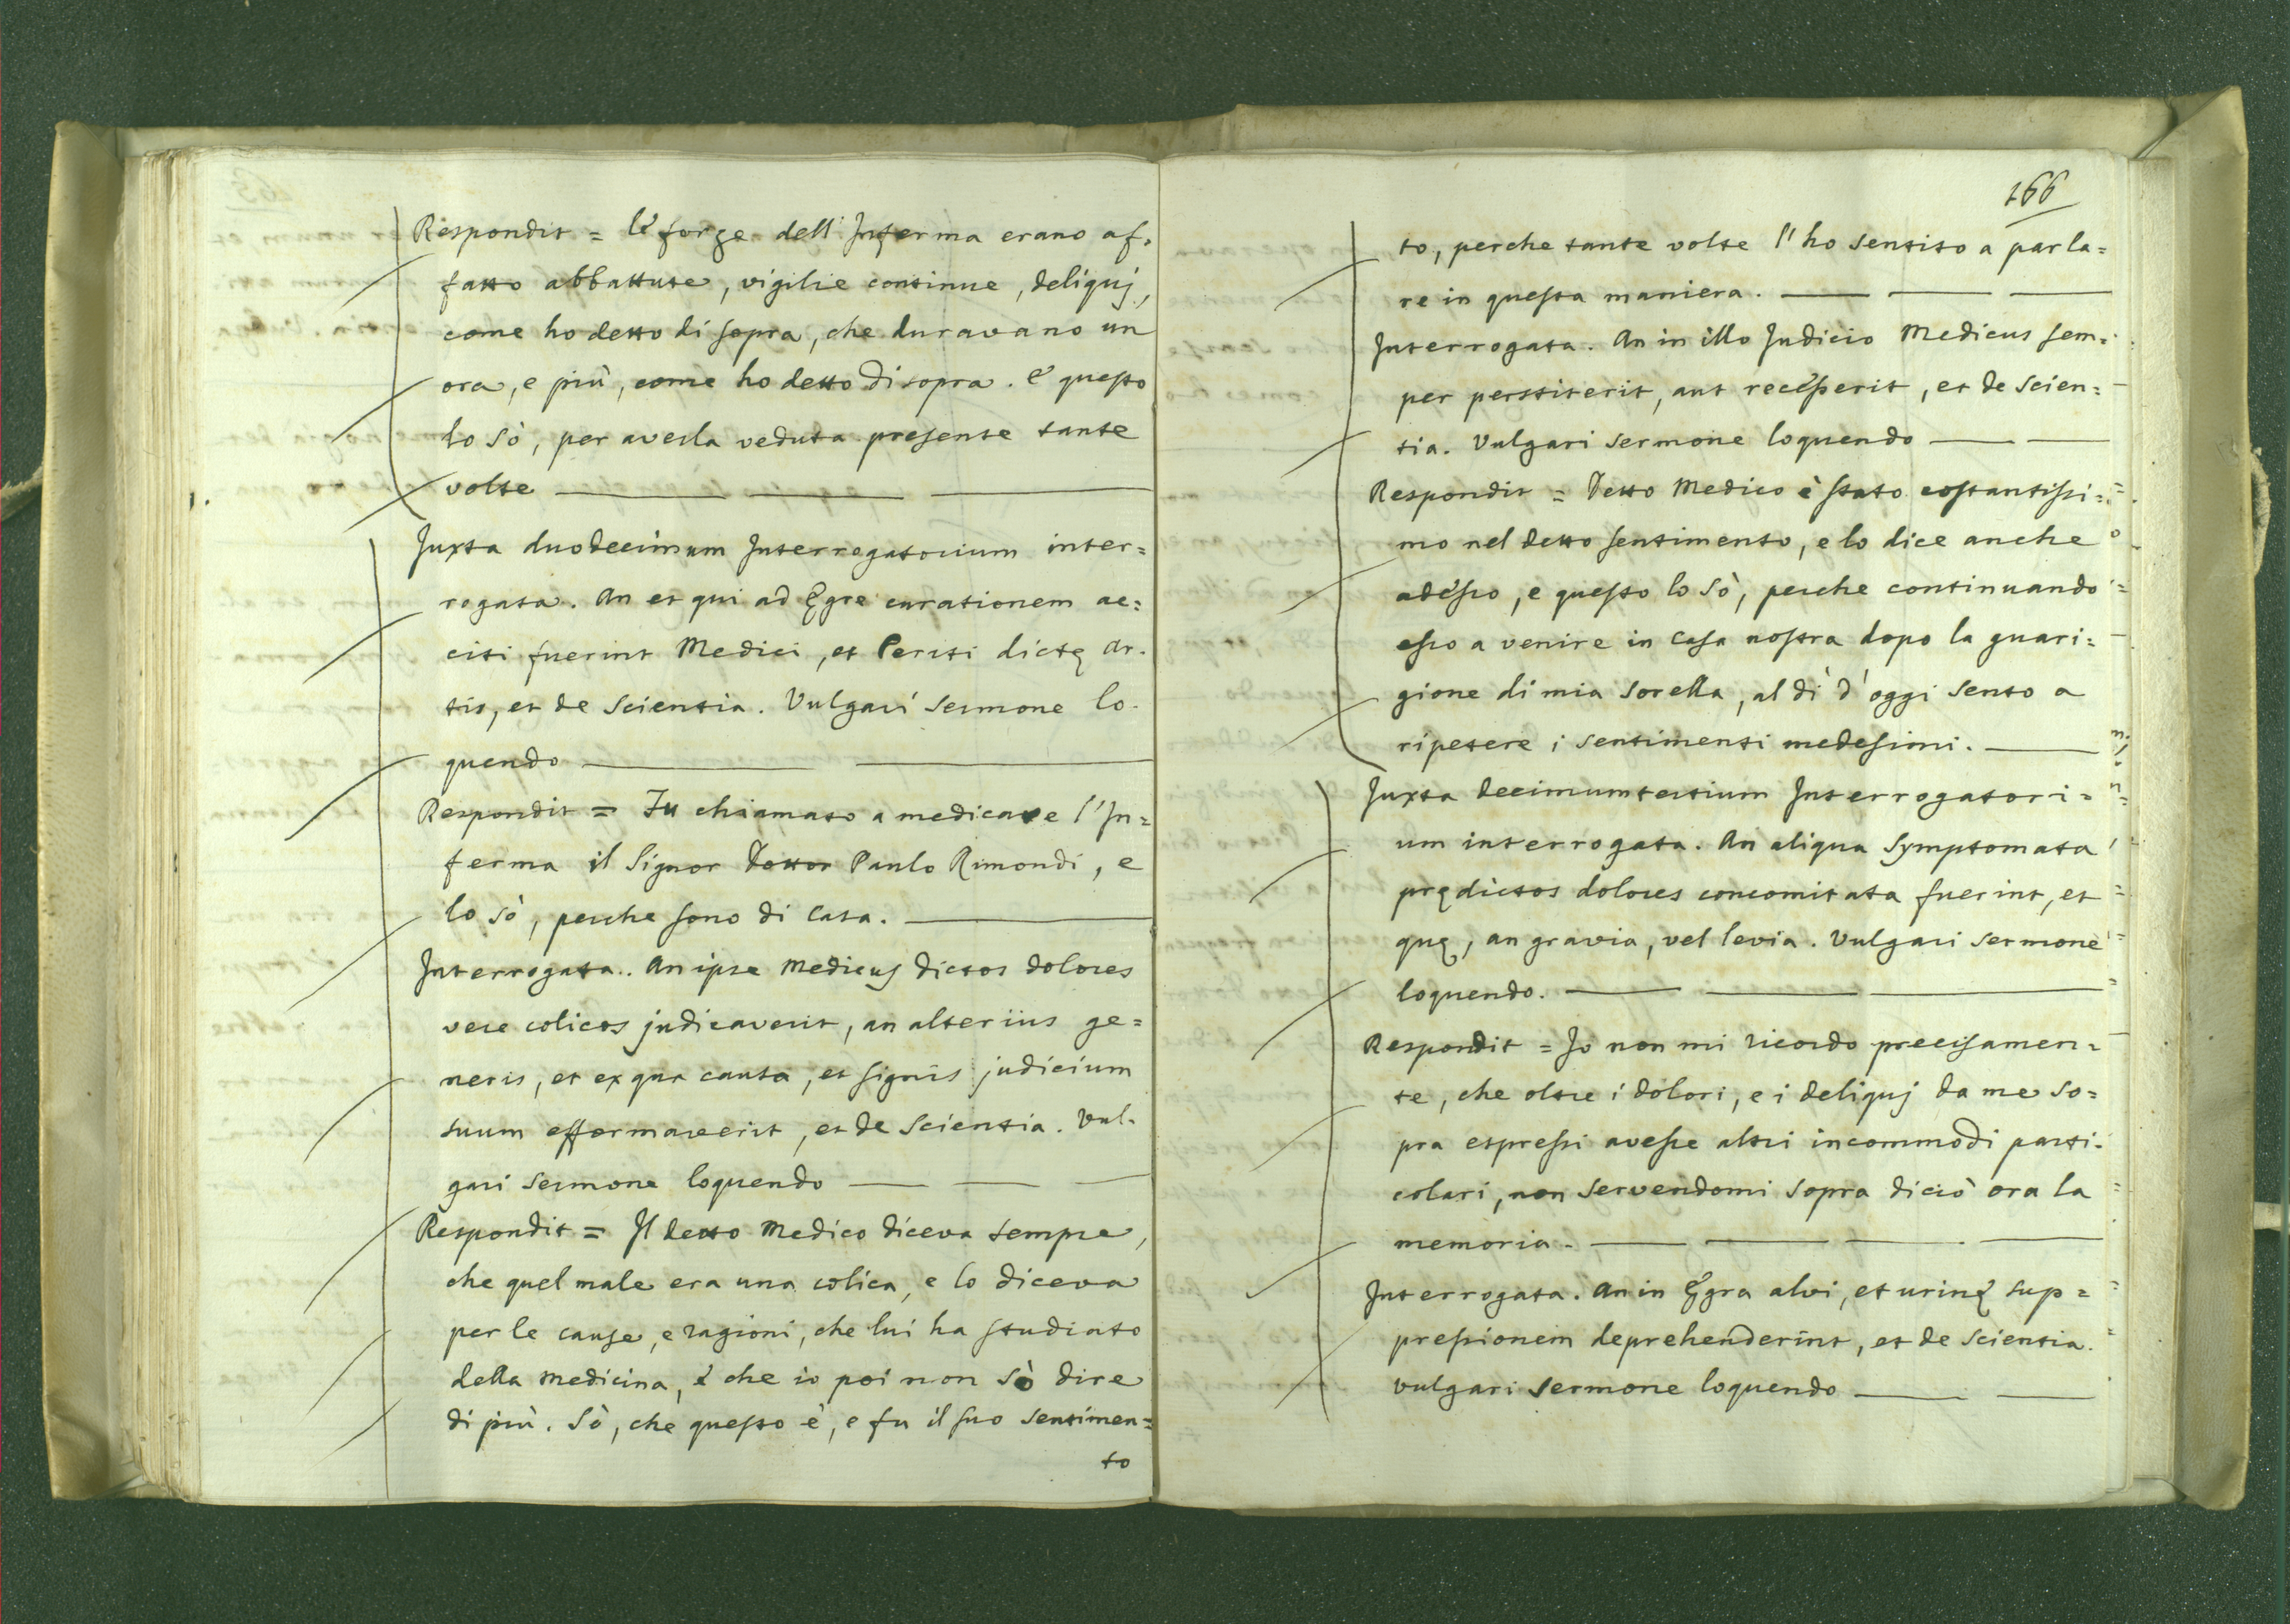 Respondit = le forze dell'Inferma erano af=
fatto abbattute, vigilie continue, deliquj,
come ho detto di sopra, che duravano un
ora, e più, come ho detto di sopra. e questo
lo sò, per averla veduta presente tante
volte
Juxta duodecimum Interrogatorium inter=
rogata. An et qui ad Ęgre curationem ac=
citi fuerint Medici, et Periti dictę Ar=
tis, et de scientia. Vulgari sermone lo=
quendo
Respondit = Fu chiamato a medicare l'In=
ferma il Signor Dottor Paulo Rimondi, e
lo sò, perche sono di Casa.
Interrogata. An ipse Medicus dictos dolores
vere colicos judicaverit, an alterius ge=
neris, et ex qua causa, et signis judicium
suum efformaverit, et de scientia. Vul=
gari sermone loquendo
Respondit = Il detto Medico diceva sempre,
che quel male era una colica, e lo diceva
per le cause, e ragioni, che lui ha studiato
della medicina, e che io poi non sò dire
di più. Sò, che questo è, e fu il suo sentimen=
to
166
to, perche tante volte l'ho sentito a parla=
re in questa maniera.
Interrogata. An in illo Judicio Medicus sem=
per perstiterit, aut recesserit, et de scien=
tia. Vulgari sermone loquendo
Respondit = Detto Medico è stato costantissi=
mo nel detto sentimento, e lo dice anche
adesso, e questo lo sò, perche continuando
esso a venire in Casa nostra dopo la guari=
gione di mia sorella, al dì d'oggi sento a
ripetere i sentimenti medesimi.
Juxta decimumtertium Interrogatori=
um interrogata. An aliqua symptomata
prędictos dolores concomitata fuerint, et
quę, an gravia, vel levia. Vulgari sermone
loquendo.
Respondit = Io non mi ricordo precisamen=
te, che oltre i dolori, e i deliquj da me so=
pra espressi avesse altri incommodi parti=
colari, non servendomi sopra diciò ora la
memoria.
Interrogata. An in Ęgra alvi, et urinę sup=
pressionem deprehenderint, et de scientia.
vulgari sermone loquendo